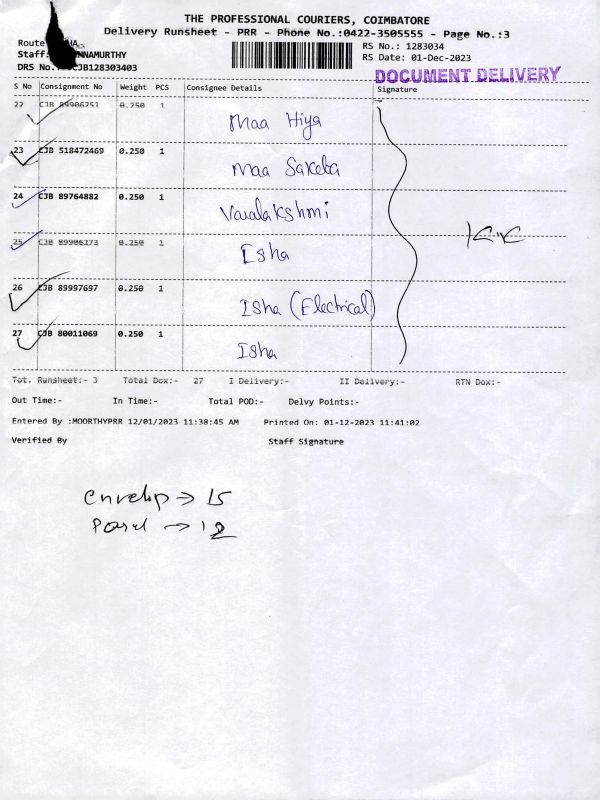 THE PROFESSIONAL COURIERS, COIMBATORE
Delivery Runsheet - PRR - Phone No.:0422-3505555 - Page No.:3
Route
RS No.: 1283034
Staff: NNAMURTHY
RS Date: 01-Dec-2023
DRS No. CJB128303403
DOCUMENT DELIVERY
S No Consignment No Weight PCS Consignee Details Signature
22 CJB 89906251 0.250 1 Maa Hiya
23 CJB 518472469 0.250 1 Maa Sakeba
24 CJB 89764882 0.250 1 Varalakshmi
25 CJB 89906273 0.250 1 Isha
26 CJB 89997697 0.250 1 Isha (Electrical)
27 CJB 80011069 0.250 1 Isha
Tot. Runsheet:- 3 Total Dox:- 27 I Delivery:- II Delivery:- RTN Dox:-
Out Time:- In Time:- Total POD:- Delvy Points:-
Entered By :MOORTHYPRR 12/01/2023 11:38:45 AM Printed On: 01-12-2023 11:41:02
Verified By Staff Signature
Envelop → 15
Parcel → 12